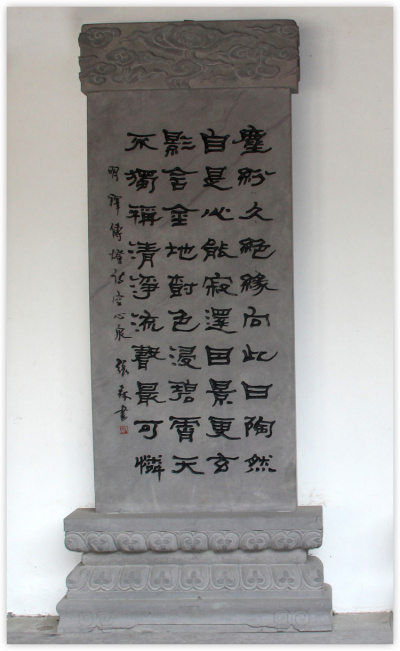 塵紛久絕緣向此日陶然
自是心能寂還因景更玄
影含金地對色浸碧霄天
不獨稱清淨流聲最可憐
明釋傳燈詠空心泉 張森書